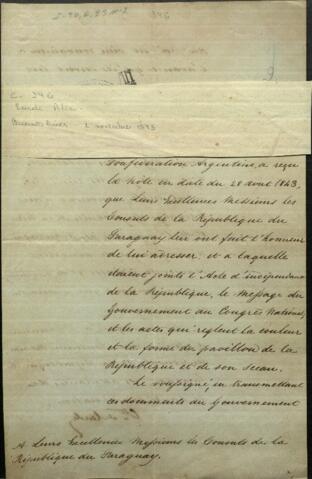 I-30,6,85 nº 2
C. 346
Buenos Aires 2 novembre 1843
Confédération Argentine, a reçu
la Note en date du 28 aout 1843,
que Leurs Excellences Messieurs les
Consuls de la République du
Paraguay lui ont fait l'honneur
de lui adresser, et a laquelle
étaient joints l'Acte d'indépendance
de la République, le Message du
Gouvernement au Congrès National,
et les actes qui règlent la couleur
et la forme du pavillon de la
République et de son Sceau.
Le soussigné, en transmettant
ces documents au Gouvernement
A Leurs Excellences Messieurs les Consuls de la
République du Paraguay.